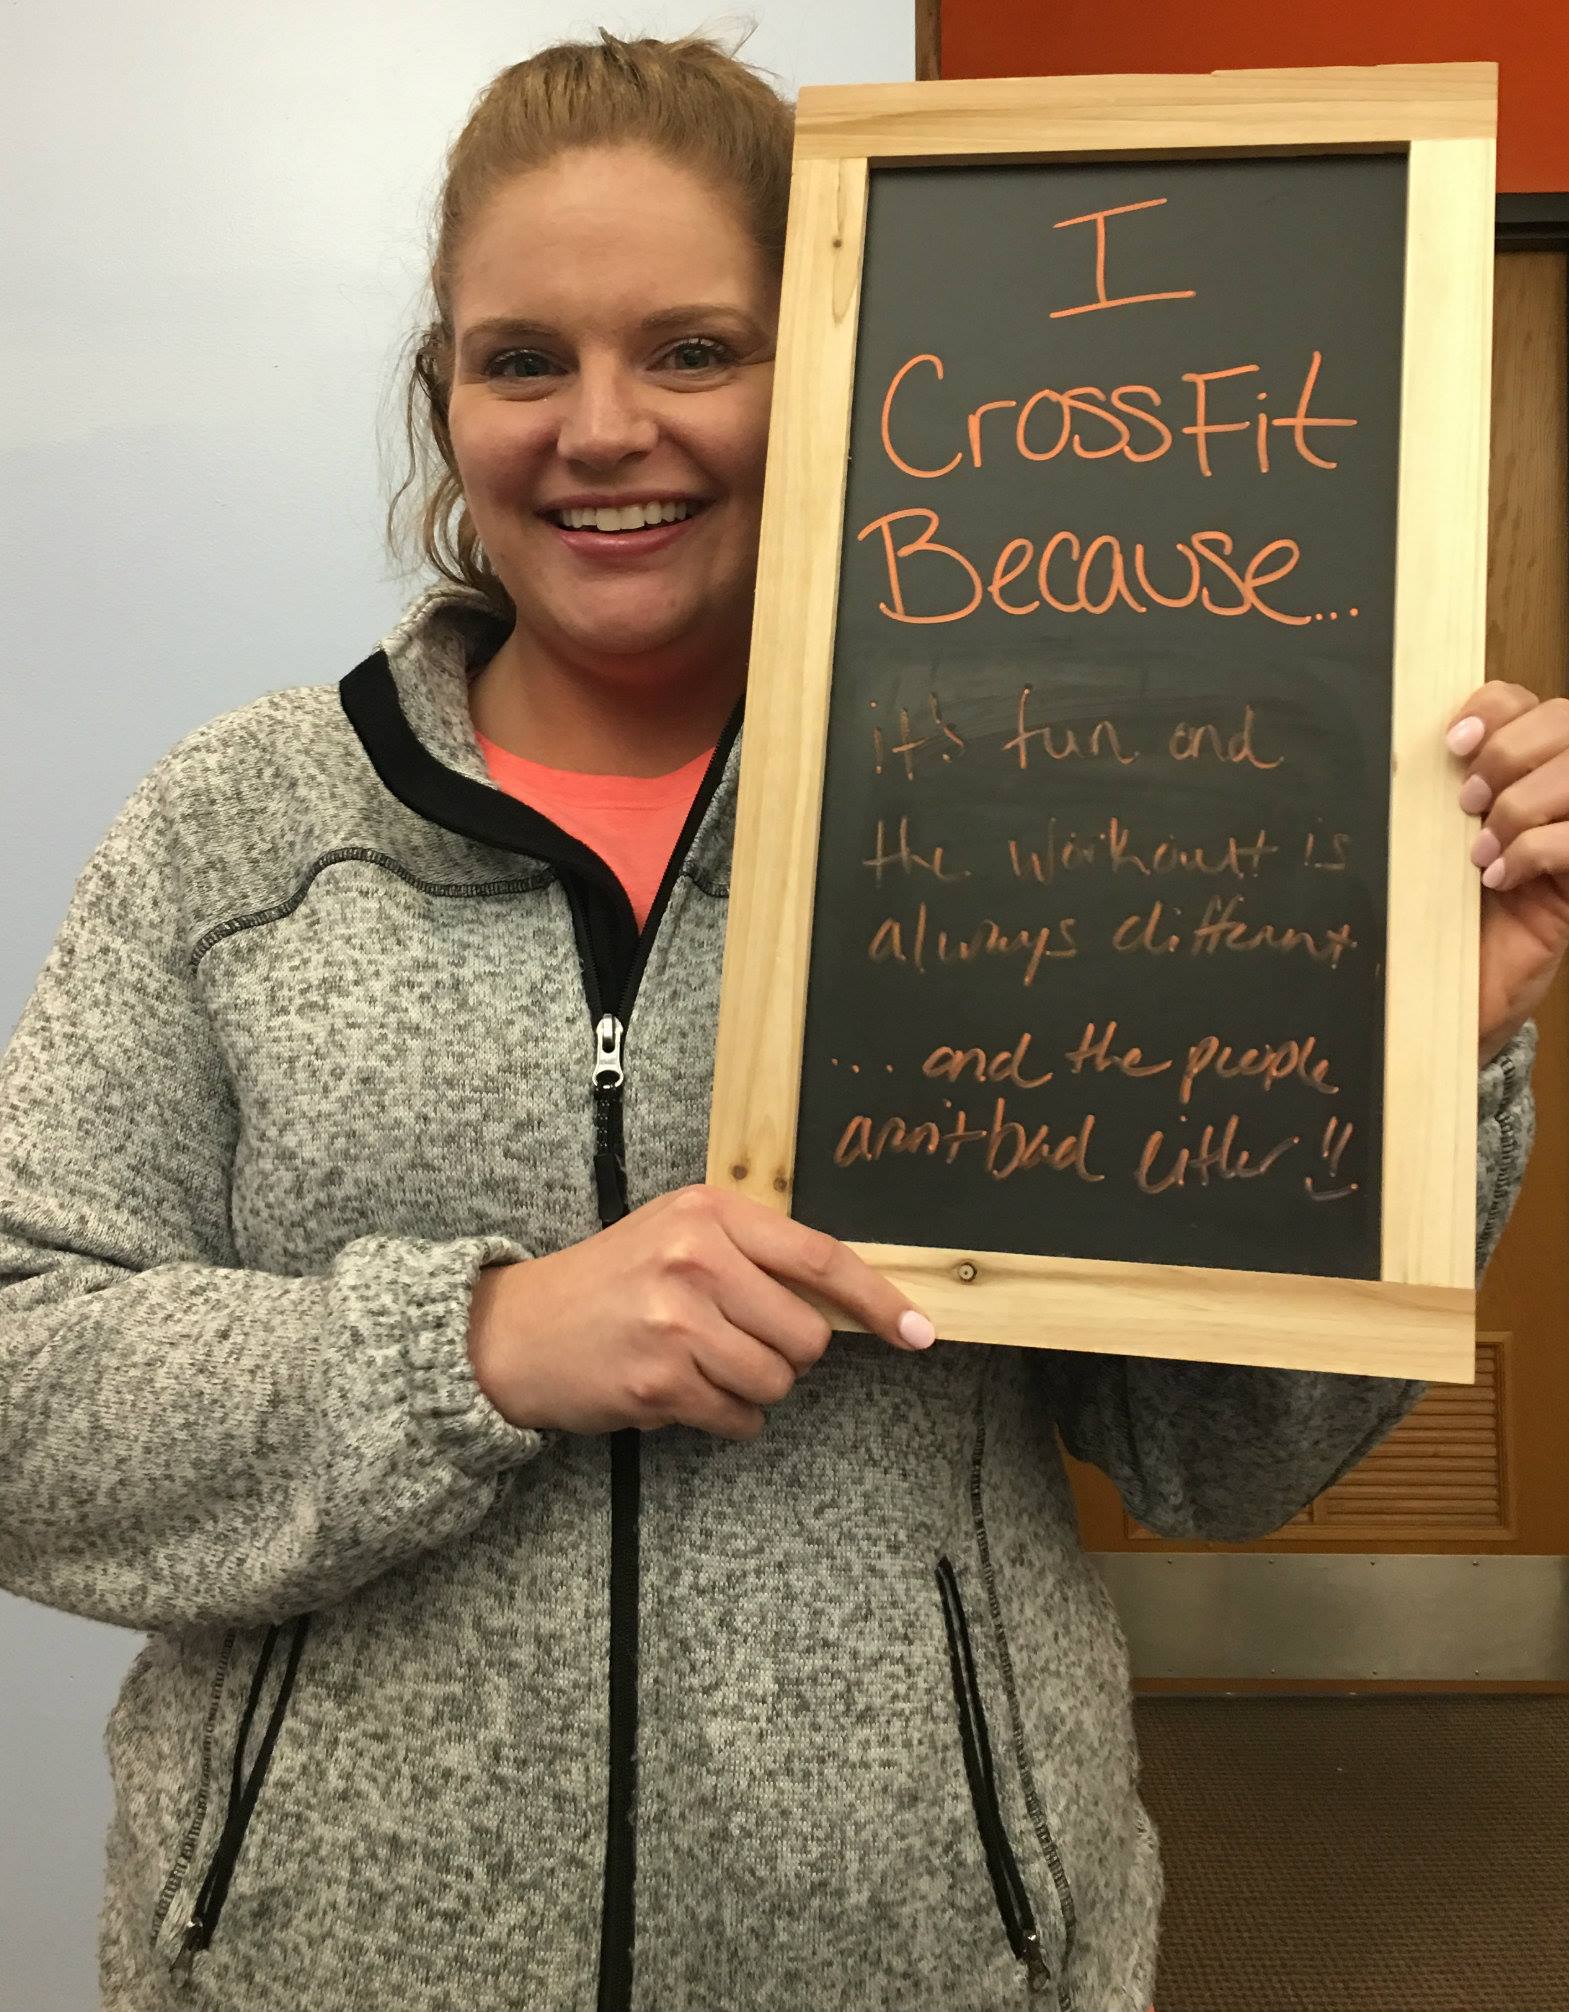 I
CrossFit
Because...
it's fun and
the workout is
always different
... and the people
aren't bad either !!